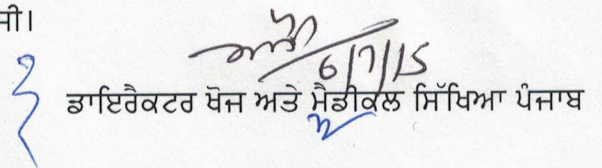 ਜੀ।
6/7/15
ਡਾਇਰੈਕਟਰ ਖੋਜ ਅਤੇ ਮੈਡੀਕਲ ਸਿੱਖਿਆ ਪੰਜਾਬ